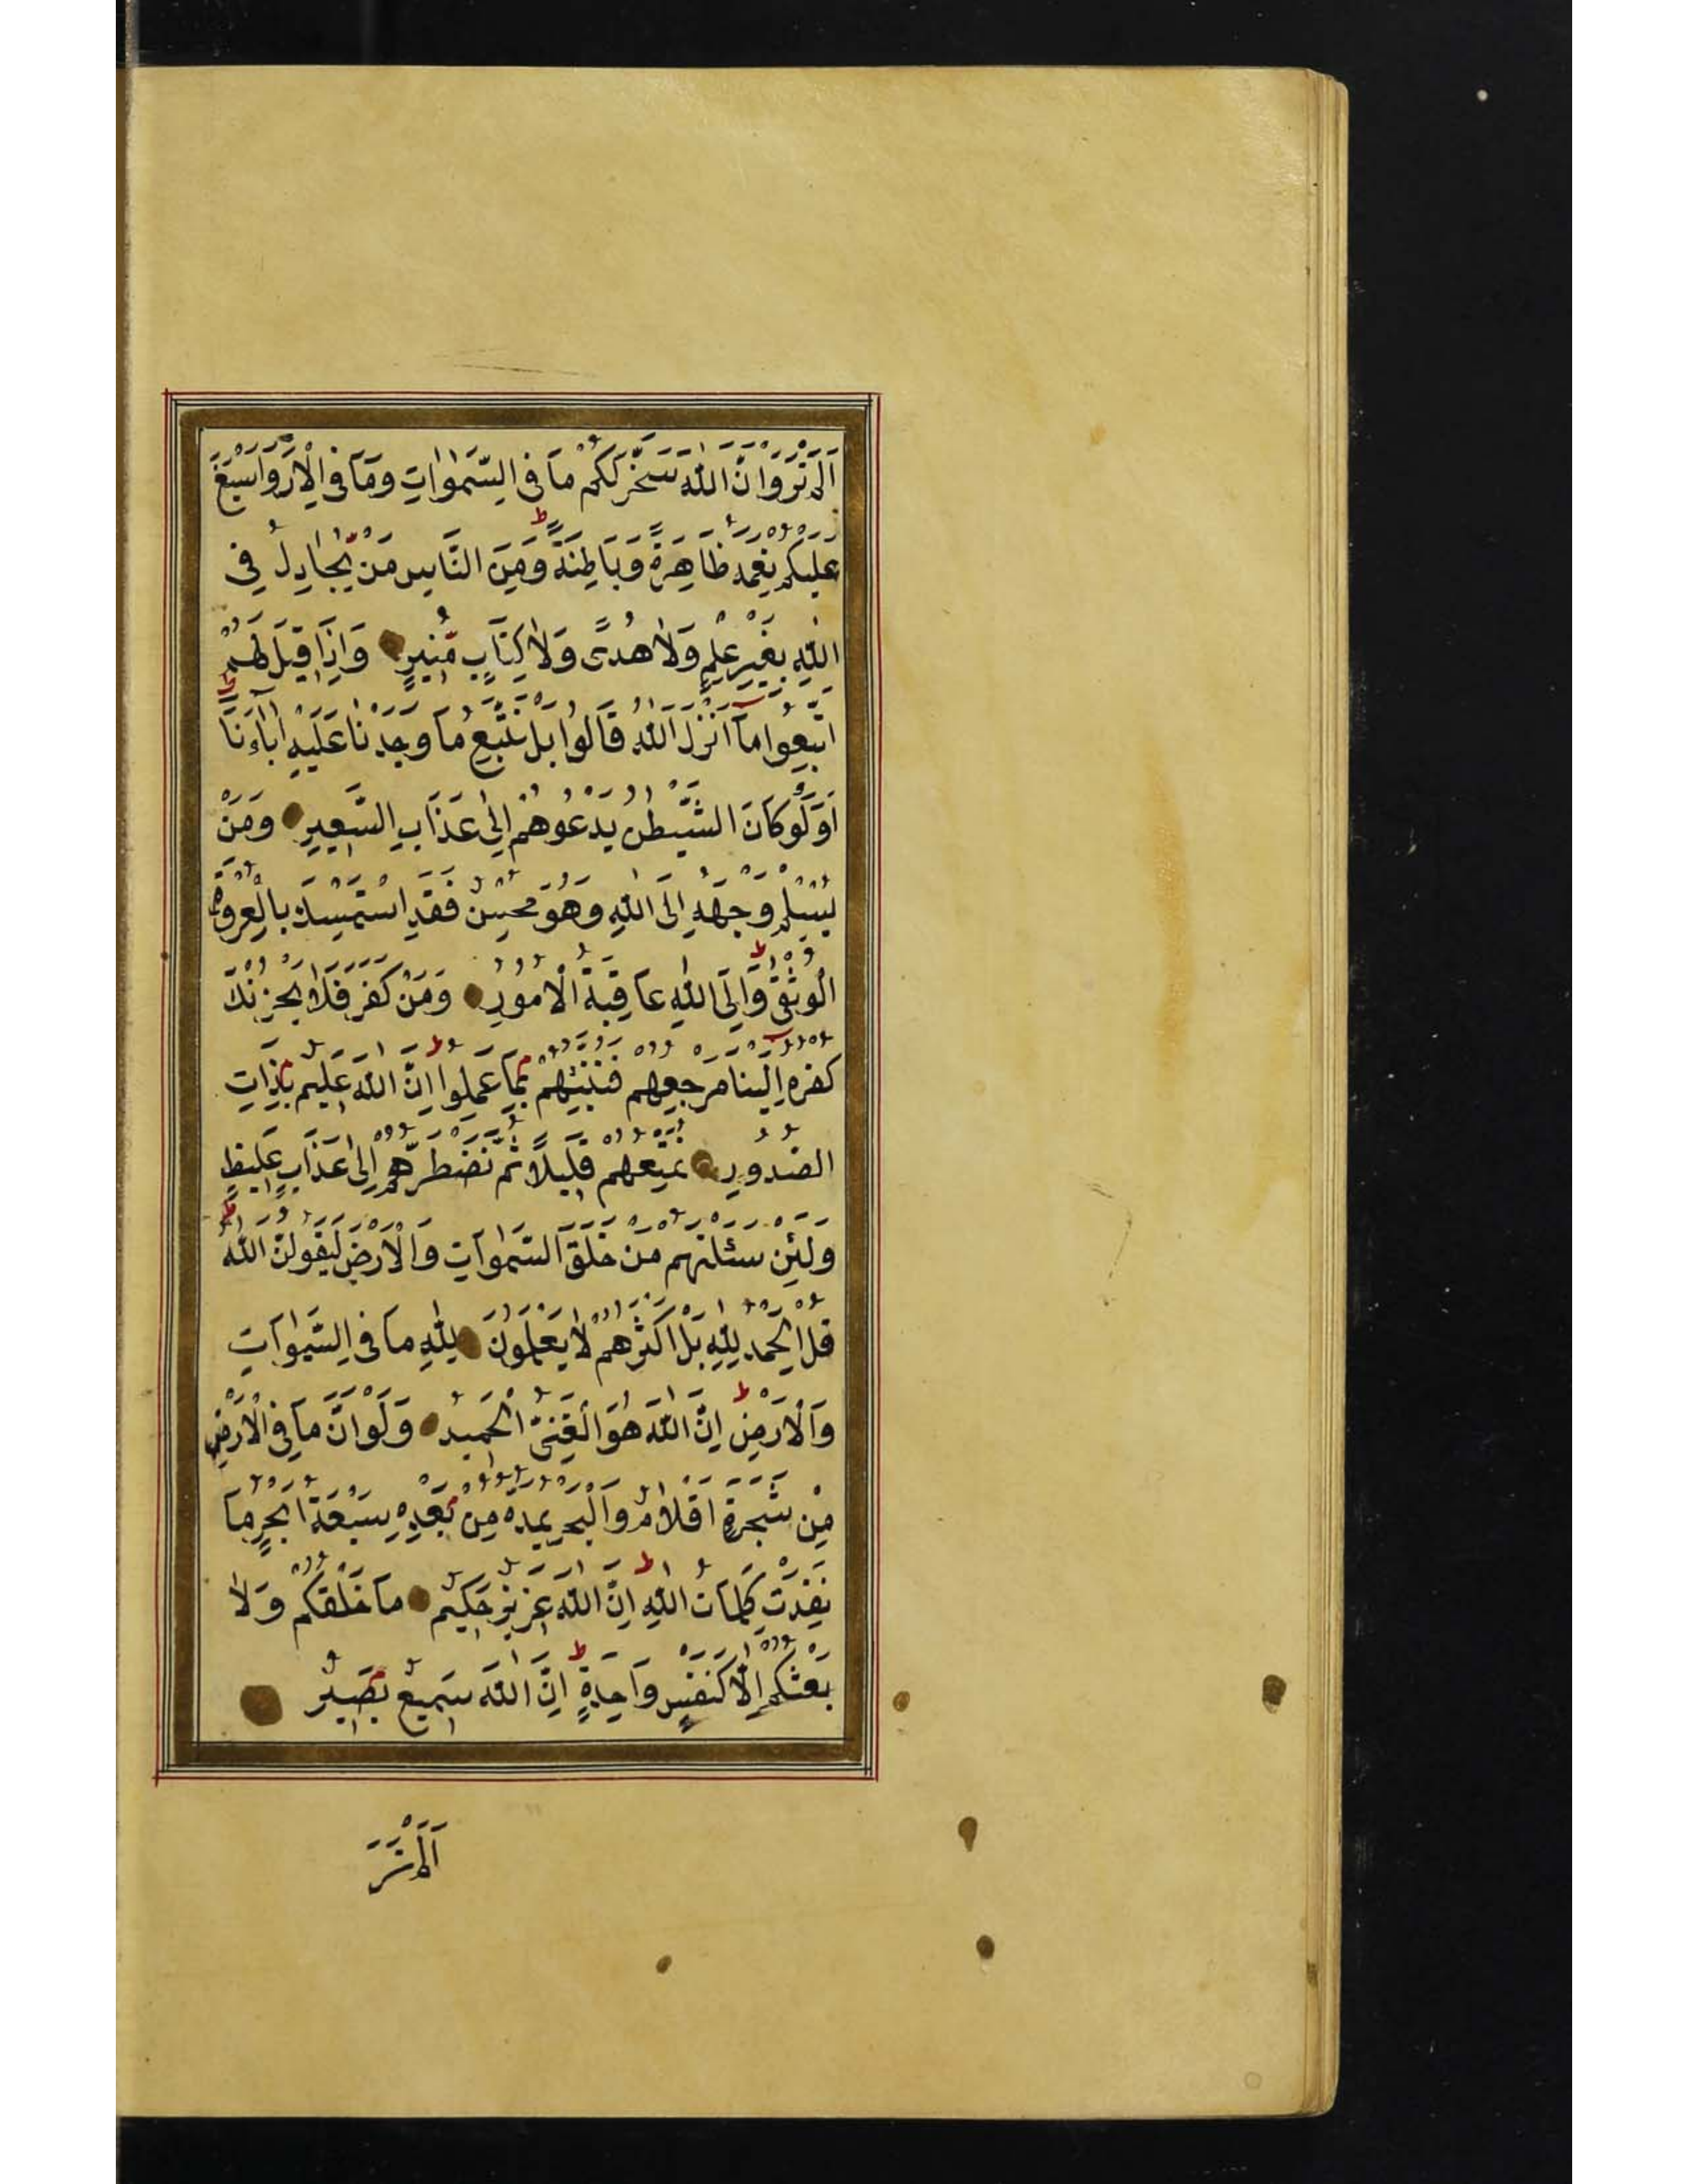 اَلَمْ تَرَوْا اَنَّ اللّٰهَ سَخَّرَ لَكُمْ مَا فِى السَّمٰوَاتِ وَمَا فِى الْاَرْضِ وَاَسْبَغَ
عَلَيْكُمْ نِعَمَهُ ظَاهِرَةً وَبَاطِنَةً ط وَمِنَ النَّاسِ مَنْ يُجَادِلُ فِى
اللّٰهِ بِغَيْرِ عِلْمٍ وَلَا هُدًى وَلَا كِتَابٍ مُنِيرٍ وَاِذَا قِيلَ لَهُمُ
اتَّبِعُوا مَآ اَنْزَلَ اللّٰهُ قَالُوا بَلْ نَتَّبِعُ مَا وَجَدْنَا عَلَيْهِ اٰبَآءَنَا
اَوَلَوْ كَانَ الشَّيْطٰنُ يَدْعُوهُمْ اِلٰى عَذَابِ السَّعِيرِ وَمَنْ
يُسْلِمْ وَجْهَهُ اِلَى اللّٰهِ وَهُوَ مُحْسِنٌ فَقَدِ اسْتَمْسَكَ بِالْعُرْوَةِ
الْوُثْقٰى ط وَاِلَى اللّٰهِ عَاقِبَةُ الْاُمُورِ وَمَنْ كَفَرَ فَلَا يَحْزُنْكَ
كُفْرُهُ اِلَيْنَا مَرْجِعُهُمْ فَنُنَبِّئُهُمْ بِمَا عَمِلُوا ط اِنَّ اللّٰهَ عَلِيمٌ بِذَاتِ
الصُّدُورِ نُمَتِّعُهُمْ قَلِيلًا ثُمَّ نَضْطَرُّهُمْ اِلٰى عَذَابٍ غَلِيظٍ
وَلَئِنْ سَئَلْتَهُمْ مَنْ خَلَقَ السَّمٰوَاتِ وَالْاَرْضَ لَيَقُولُنَّ اللّٰهُ ط
قُلِ الْحَمْدُ لِلّٰهِ بَلْ اَكْثَرُهُمْ لَا يَعْلَمُونَ لِلّٰهِ مَا فِى السَّمٰوَاتِ
وَالْاَرْضِ ط اِنَّ اللّٰهَ هُوَ الْغَنِىُّ الْحَمِيدُ وَلَوْ اَنَّ مَا فِى الْاَرْضِ
مِنْ شَجَرَةٍ اَقْلَامٌ وَالْبَحْرُ يَمُدُّهُ مِنْ بَعْدِهِ سَبْعَةُ اَبْحُرٍ مَا
نَفِدَتْ كَلِمَاتُ اللّٰهِ ط اِنَّ اللّٰهَ عَزِيزٌ حَكِيمٌ مَا خَلْقُكُمْ وَلَا
بَعْثُكُمْ اِلَّا كَنَفْسٍ وَاحِدَةٍ ط اِنَّ اللّٰهَ سَمِيعٌ بَصِيرٌ
اَلَمْ تَرَ